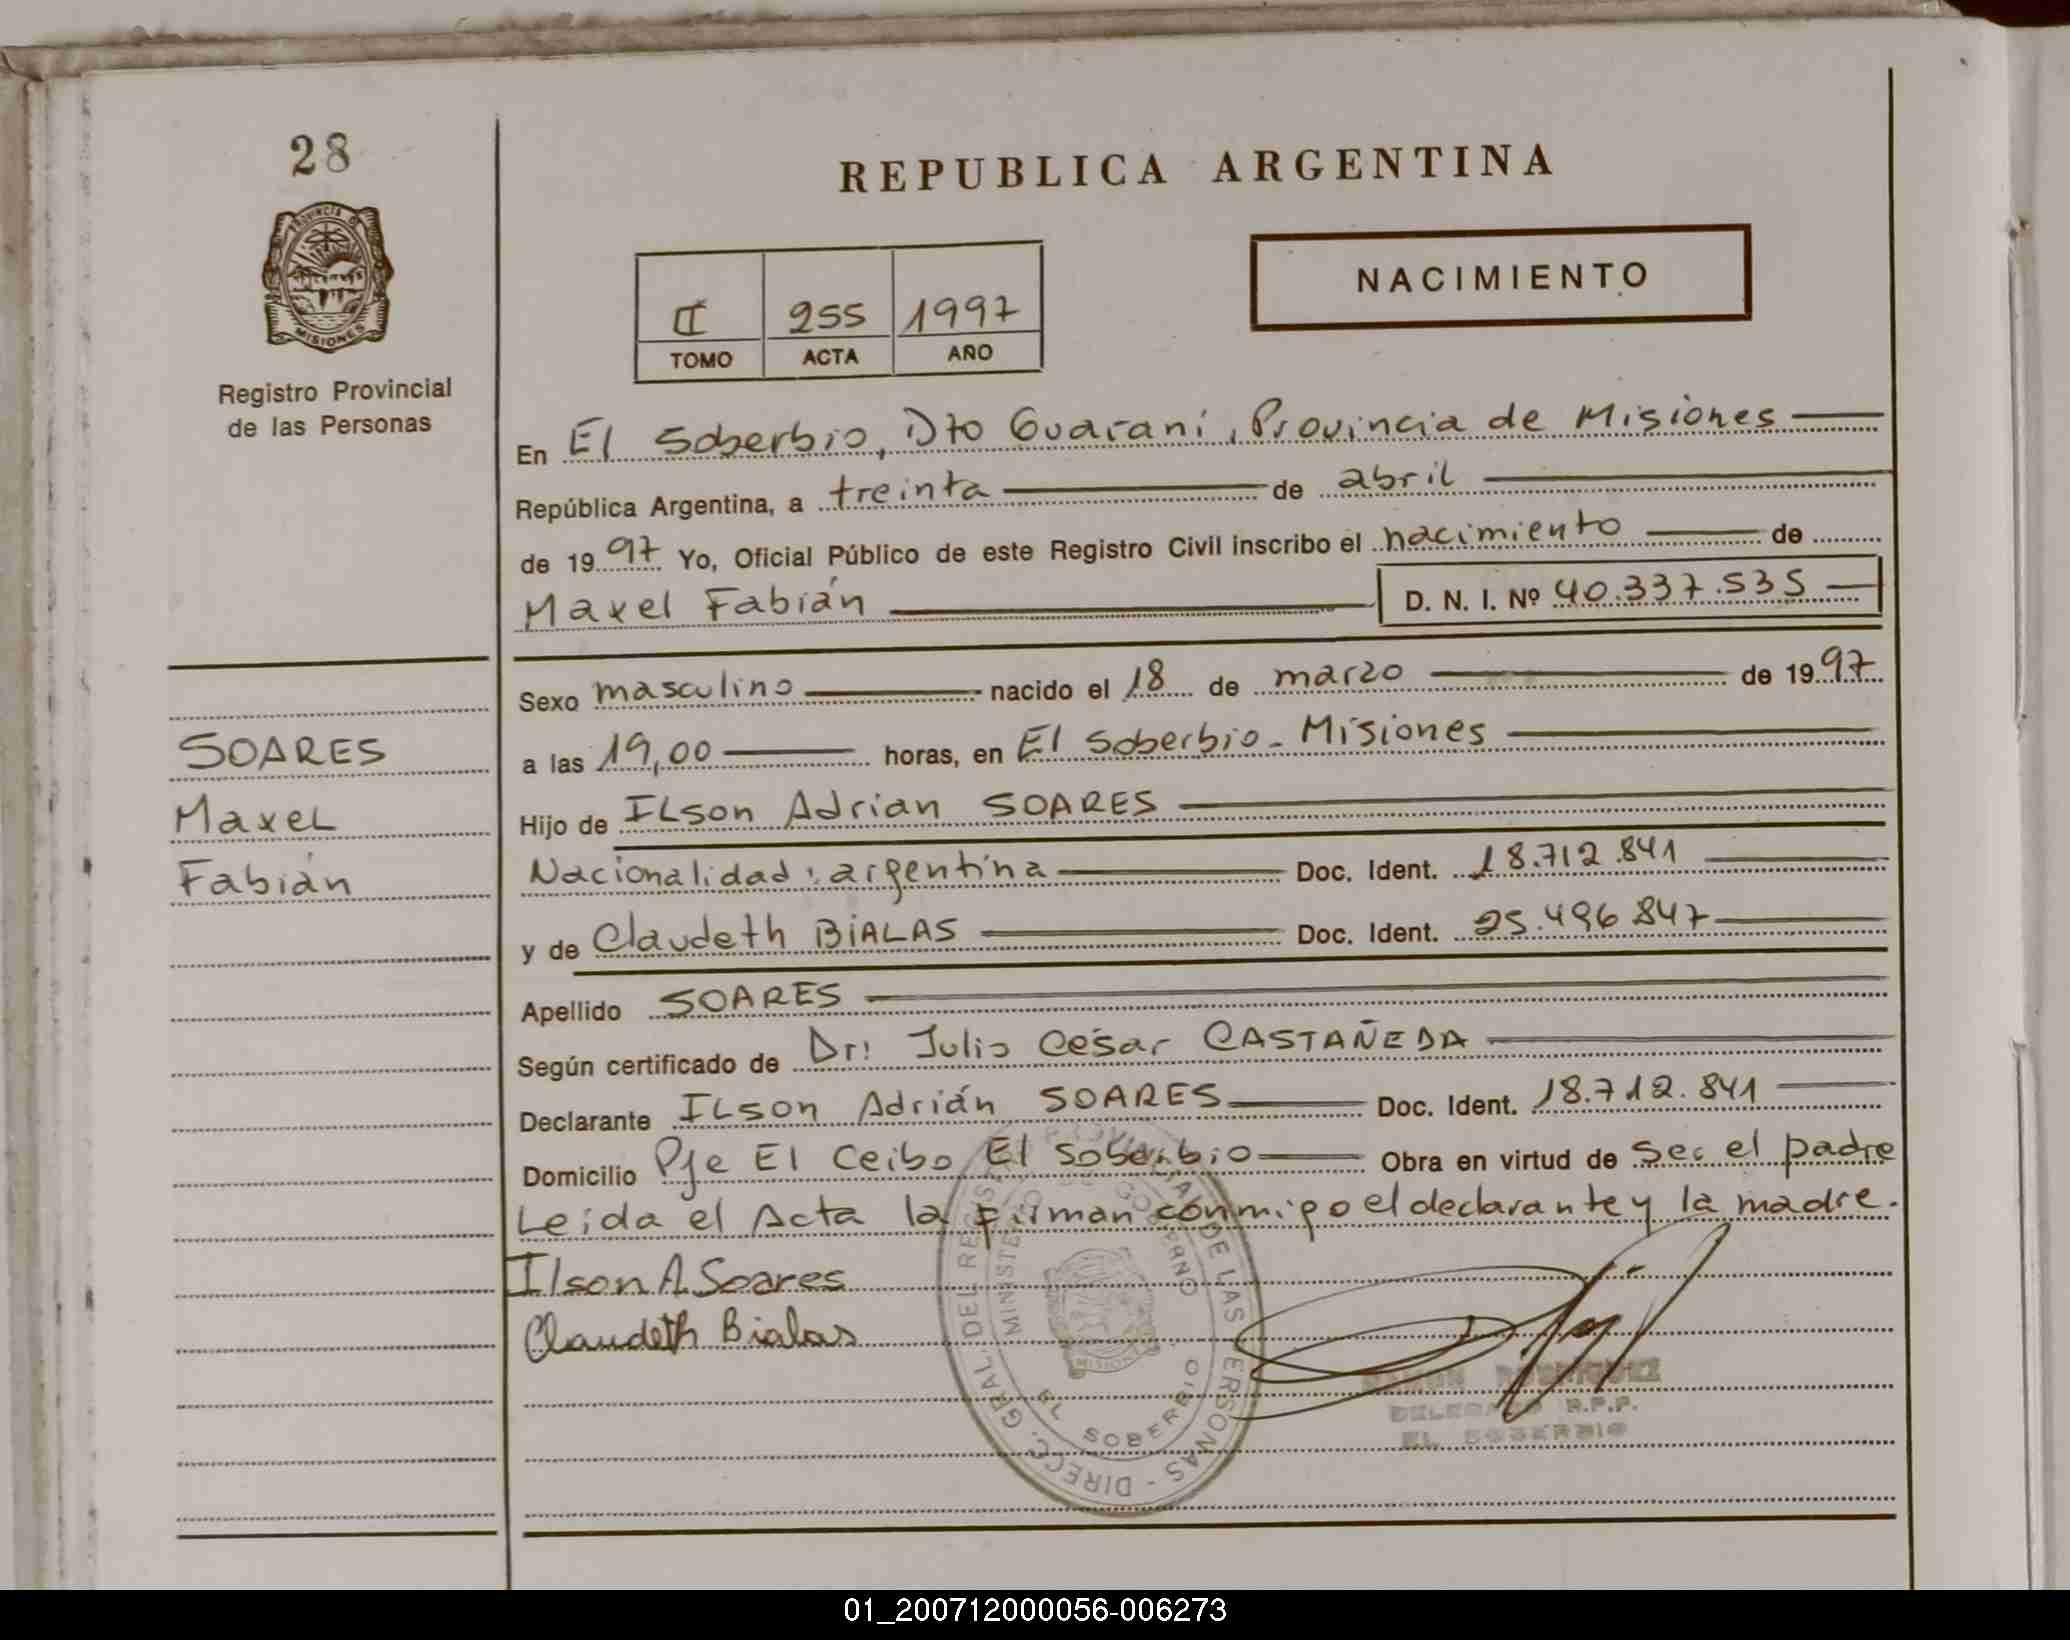 28
PROVINCIA DE
MISIONES
Registro Provincial
de las Personas
SOARES
Maxel
Fabián
REPUBLICA ARGENTINA
II 255 1997
TOMO ACTA AÑO
NACIMIENTO
En El Soberbio, Dto Guaraní, Provincia de Misiones
República Argentina, a treinta de abril
de 19 97 Yo, Oficial Público de este Registro Civil inscribo el nacimiento de
Maxel Fabián D. N. I. Nº 40.337.535
Sexo masculino nacido el 18 de marzo de 19 97
a las 19,00 horas, en El Soberbio - Misiones
Hijo de ILson Adrian SOARES
Nacionalidad: argentina Doc. Ident. 18.712.841
y de Claudeth BIALAS Doc. Ident. 25.496.847
Apellido SOARES
Según certificado de Dr: Julio César CASTAÑEDA
Declarante ILson Adrián SOARES Doc. Ident. 18.712.841
Domicilio Pje El Ceibo El Soberbio Obra en virtud de ser el padre
Leida el Acta la firman conmigo el declarante y la madre.
Ilson A. Soares
Claudeth Bialas
DIRECC. GRAL. DEL REG DE LAS PERSONAS
MINISTE GOBIERNO
MISIONES
EL SOBERBIO
RODRIGUEZ
DELEGADO R.P.P.
EL SOBERBIO
01_200712000056-006273